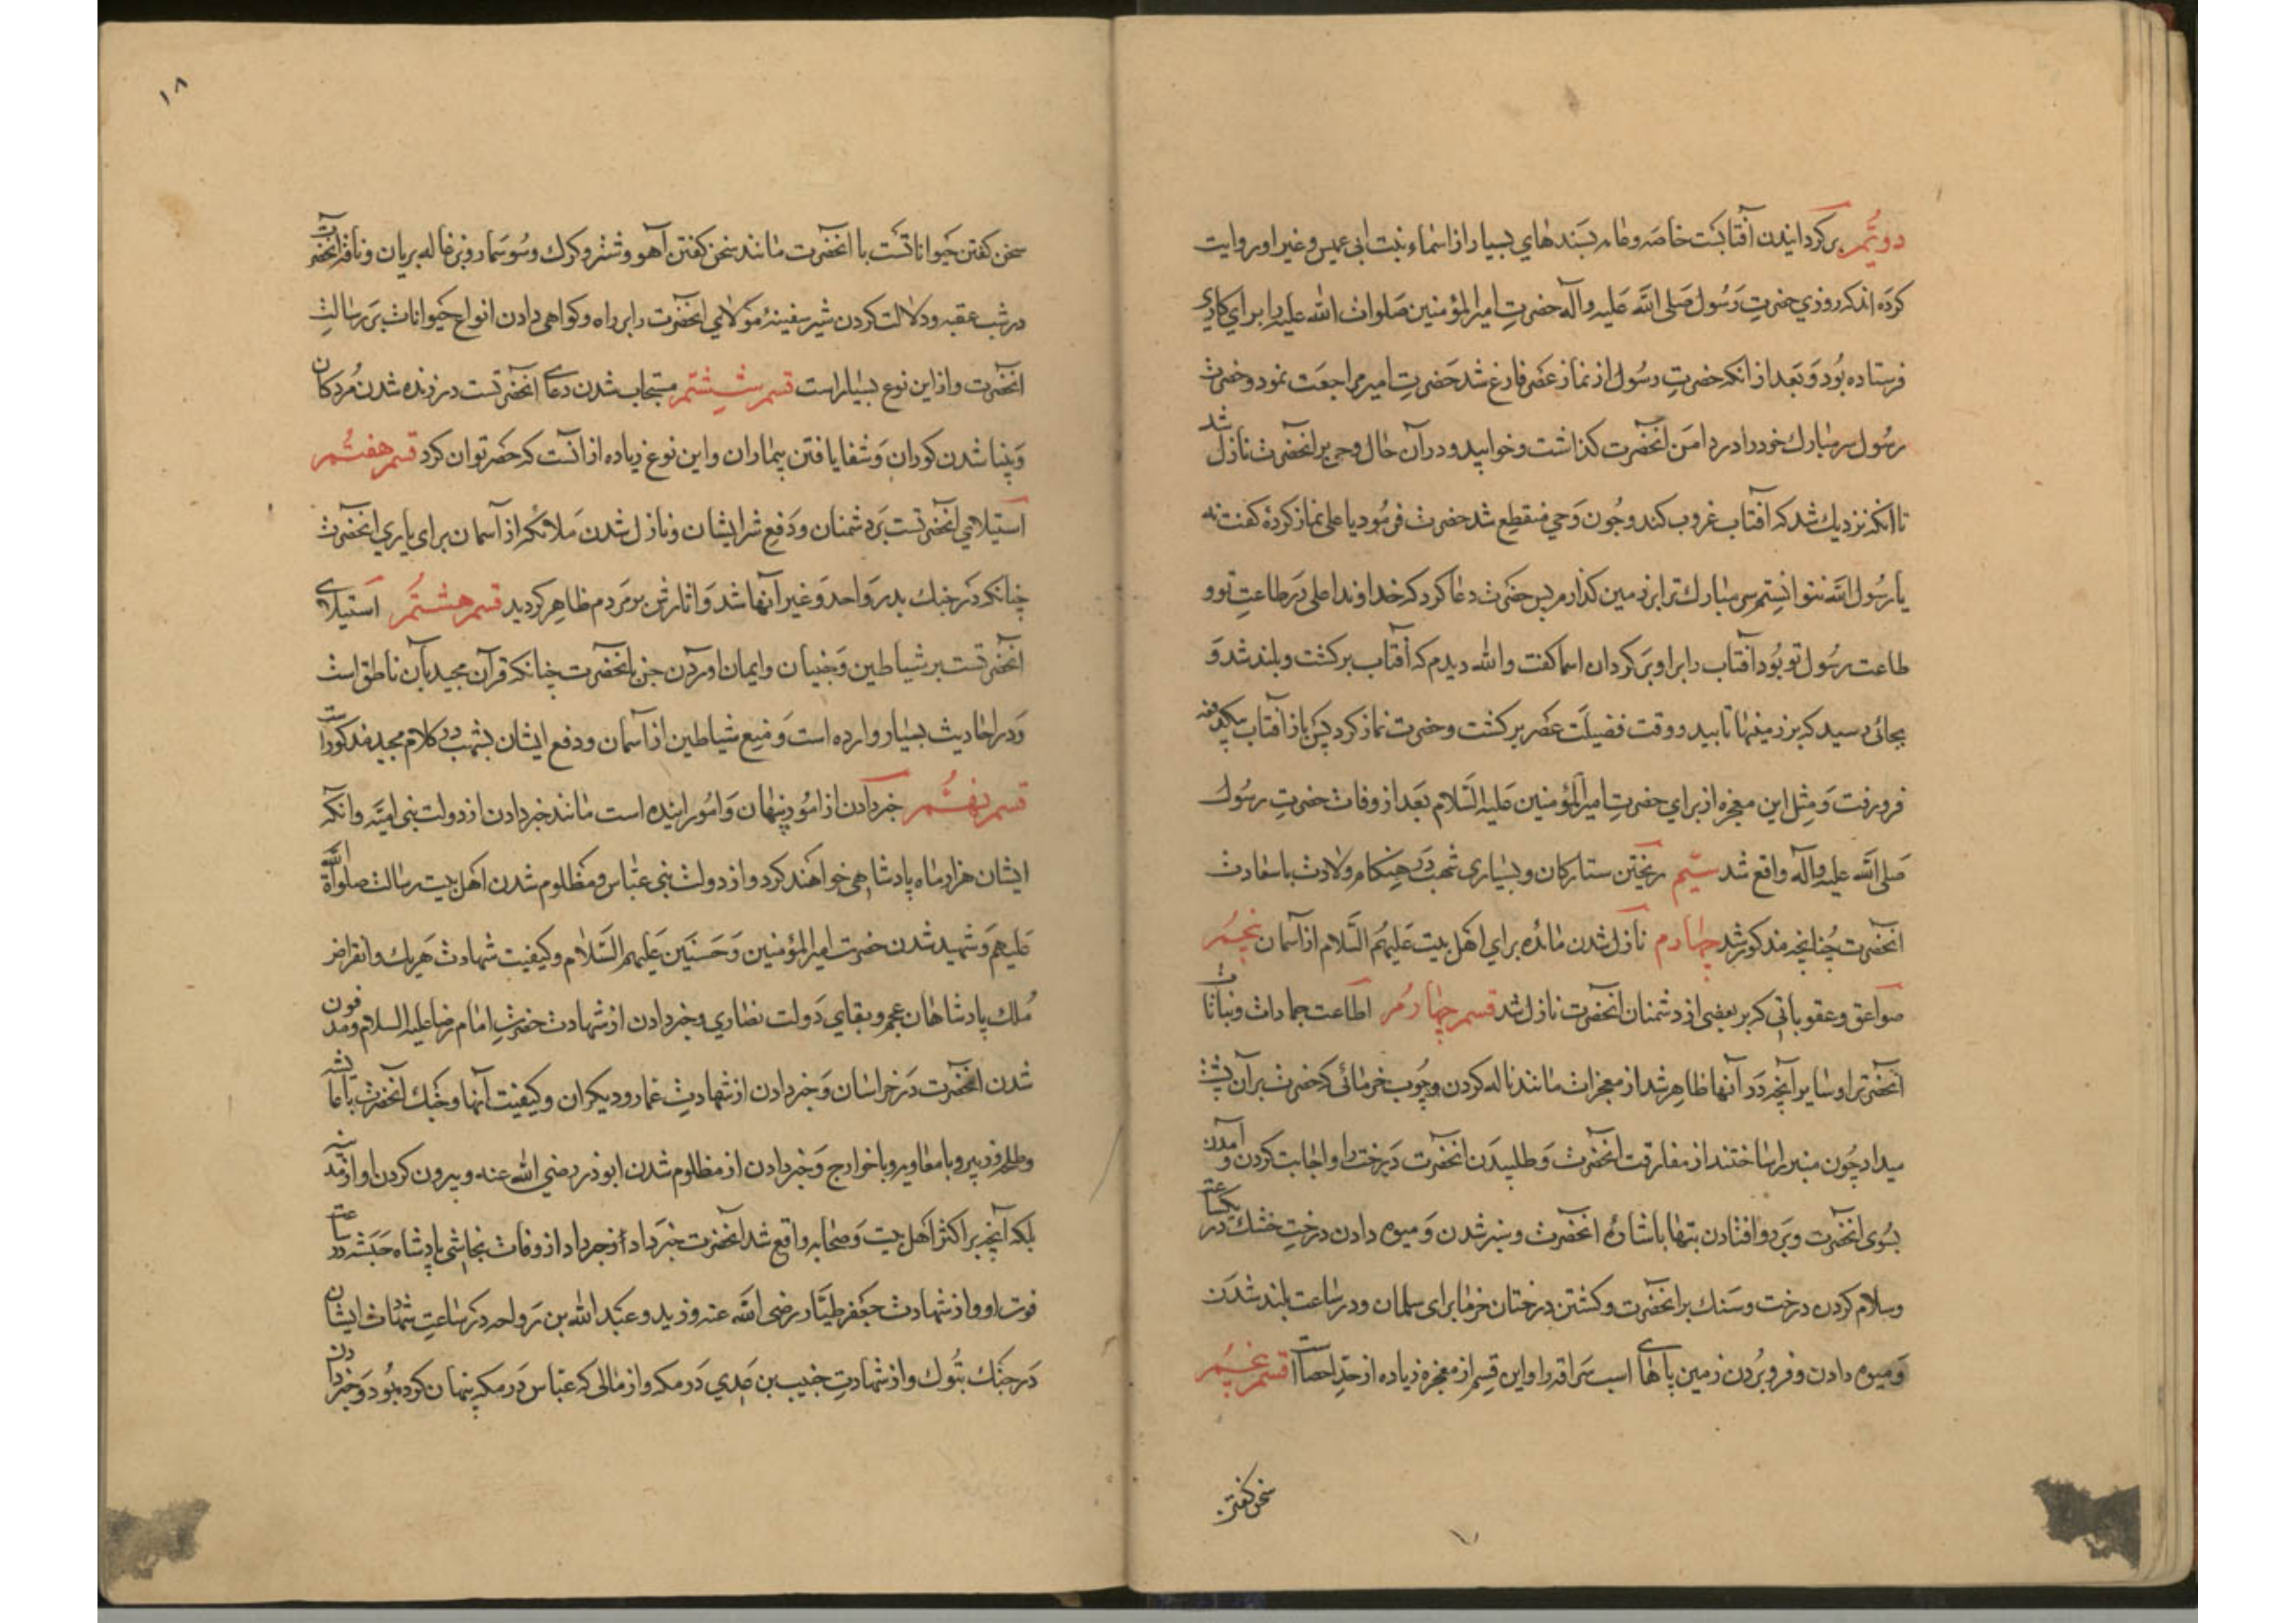 دويّم بركردانيدن آفتابست خاصه و عامه بسندهاي بسيار از اسماء بنت ابي عميس و غير او روايت
كرده اند كه روزي حضرتِ رَسُول صَلى الله عَليه وآله حضرتِ امير المؤمنين صَلوات الله عليه را براي كاري
فرستاده بُود وَ بَعد از انكه حضرتِ رسُول از نماز عصر فارغ شد حَضرتِ امير مراجعَت نمود و حضرت
رسُول سر مبارك خود را در دامَن آنحضرت كذاشت و خوابيد و در آن حال وحي بر انحضرت نازل شد
تا آنكه نزديك شد كه آفتاب غروب كند و چُون وَحي منقطع شد حضرت فرمُود يا علي نماز كردهٔ كفت نه
يا رسُول الله نتوانستم سر مبارك ترا بر زمين كذارم پس حضرت دعا كرد كه خداوندا علي دَر طاعتِ تو و
طاعت رسُول تو بُود آفتاب را بر او بَركردان اسما كفت والله ديدم كه آفتاب بركشت و بلند شد وَ
بجائي رسيد كه بر زمينها تابيد و وقت فضيلَت عصر بركشت و حضرت نماز كرد پَس باز آفتاب بيكدفعه
فرو رفت وَ مِثل اين معجزه از براي حضرتِ امير المؤمنين عَليه السَّلام بَعد از وفات حضرتِ رسُول
صَلى الله عليه وآله واقع شد سيّم ريختن ستاركان و بسياري شهب دَر هنكام ولادت با سعادت
انحضرت چُنانچه مذكور شد چهارم نازل شدن مائده براي اهَل بيت عَليهُم السَّلام از آسمان پنجُم
صواعق و عقوباتي كه بر بعضي از دشمنان انحضرت نازل شد قسم چهارُم اطاعت جمادات و نباتات
آنحضرَترا و ساير آنچه در آنها ظاهِر شد از معجزات مانند ناله كردن چُوب خرمائي كه حضرت بر آن پشت
ميداد چُون منبر را ساختند از مفارقت انحضرت وَ طلبيدَن انحضرت دَرخت را و اجابت كردن و آمدن
بسُوى انحضرت و بَر رو افتادن بتها باشارهٔ انحضرت و سبز شدن وَ ميوه دادن درختِ خشك در يكساعت
و سلام كردن درخت و سَنك بر انحضرت و كشتن درختان خرما براى سلمان و در ساعت بلند شدَن
وَ ميوه دادن و فرو بُردن زمين پاهاى اسب سَراقه را و اين قِسم از معجزه زياده از حدّ احصا است قسم پنجُم
سخن كفتن
سخن كفتن حَيواناتست با انحضرت مانند سخن كفتن آهو و شتر و كرك و سُوسمار و بزغاله بريان و ناقه آنحضرت
در شب عقبه و دلالت كردن شير سفينهٔ مَولاي انحضرت را بر راه و كواهي دادن انواع حَيوانات بَر رسالتِ
انحضرت و از اين نوع بسيار است قسم شِشتم مستجاب شدن دعاى انحضرتست در زنده شدن مُردكان
وَ بينا شدن كوران وَ شفا يافتن بيماران و اين نوع زياده از انست كه حصر توان كرد قسم هفتُم
استيلاي انحضرتست بَر دشمنان وَ دَفع شر ايشان و نازل شدن مَلائكه از آسمان براى ياري انحضرت
چنانكه دَر جنك بدر وَ احد وَ غير آنها شد وَ اثارش بر مَردم ظاهِر كرديد قسم هشتُم استيلاى
انحضرتست بر شياطين وَ جنيان و ايمان اوردن جن بانحضرت چنانكه قرآن مجيد بآن ناطق است
وَ در احاديث بسيار وارده است وَ منع شياطين از آسمان و دفع ايشان بشهب در كلام مجيد مذكور است
قسم نهُم خبر دادن از امُور پنهان وَ امُور اينده است مانند خبر دادن از دولت بني اميّه و آنكه
ايشان هزار ماه پادشاهي خواهند كرد و از دولت بني عبّاس و مظلوم شدن اهل بيت رسالت صلواة الله
عليهم وَ شهيد شدن حضرت امير المؤمنين وَ حَسنَين عَليهم السَّلام و كيفيت شهادت هَر يك و انقراض
مُلك پادشاهان عجم و بقاي دَولت نصاري و خبر دادن از شهادت حضرتِ امام رضا عليه السلام و مدفون
شدن انحضرت دَر خراسان وَ خبر دادن از شهادتِ عمار و ديكران و كيفيت آنها و جنك آنحضرت با عايشه
و طلحه و زبير و با معاويه و با خوارج وَ خبر دادن از مظلوم شدن ابوذر رضي الله عنه و بيرون كردن او از مدينه
بلكه آنچه بر اكثر اهَل بيت وَ صحابه واقع شد انحضرت خبر داد و خبر داد از وفات نجاشي پادشاه حَبشه در ساعت
فوت او و از شهادت جَعفر طيّار رضى الله عنه و زيد و عَبدالله بن رَواحه دَر ساعتِ شهادت ايشان
دَر جنك تبُوك و از شهادتِ خبيب بن عَدي دَر مكه و از مالى كه عبّاس دَر مكه پنهان كرده بُود وَ خبر دادن